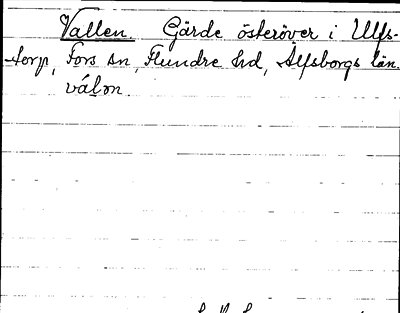 Vallen. Gärde österöver i Ulfs-
torp, Fors sn, Flundre hd, Älfsborgs län.
válon.